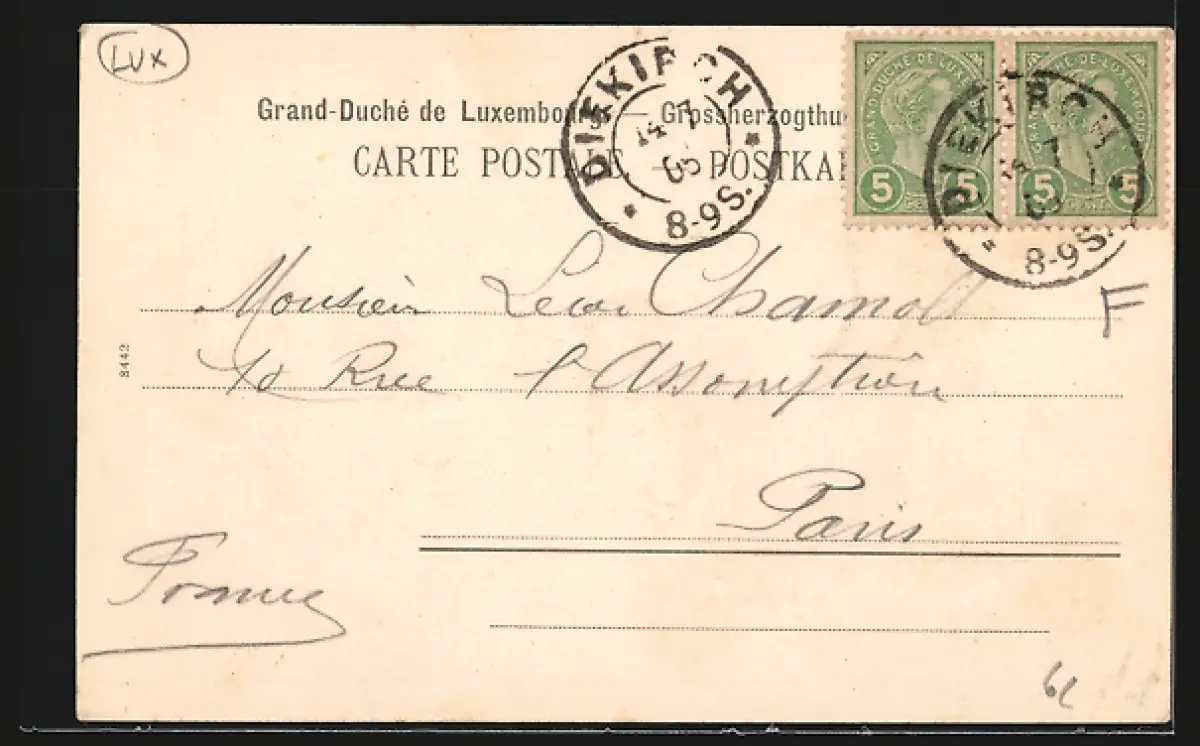 LUX
Grand-Duché de Luxembourg — Grossherzogthu
CARTE POSTALE — POSTKA
DIEKIRCH
14 7
8-9 S.
GRAND-DUCHÉ DE LUXEMBOURG
5 5
GRAND-DUCHÉ DE LUXEMBOURG
5 5
DIEKIRCH
8-9 S.
Monsieur Léon Chamoll
F
10 Rue l'Assomption
8442
Paris
France